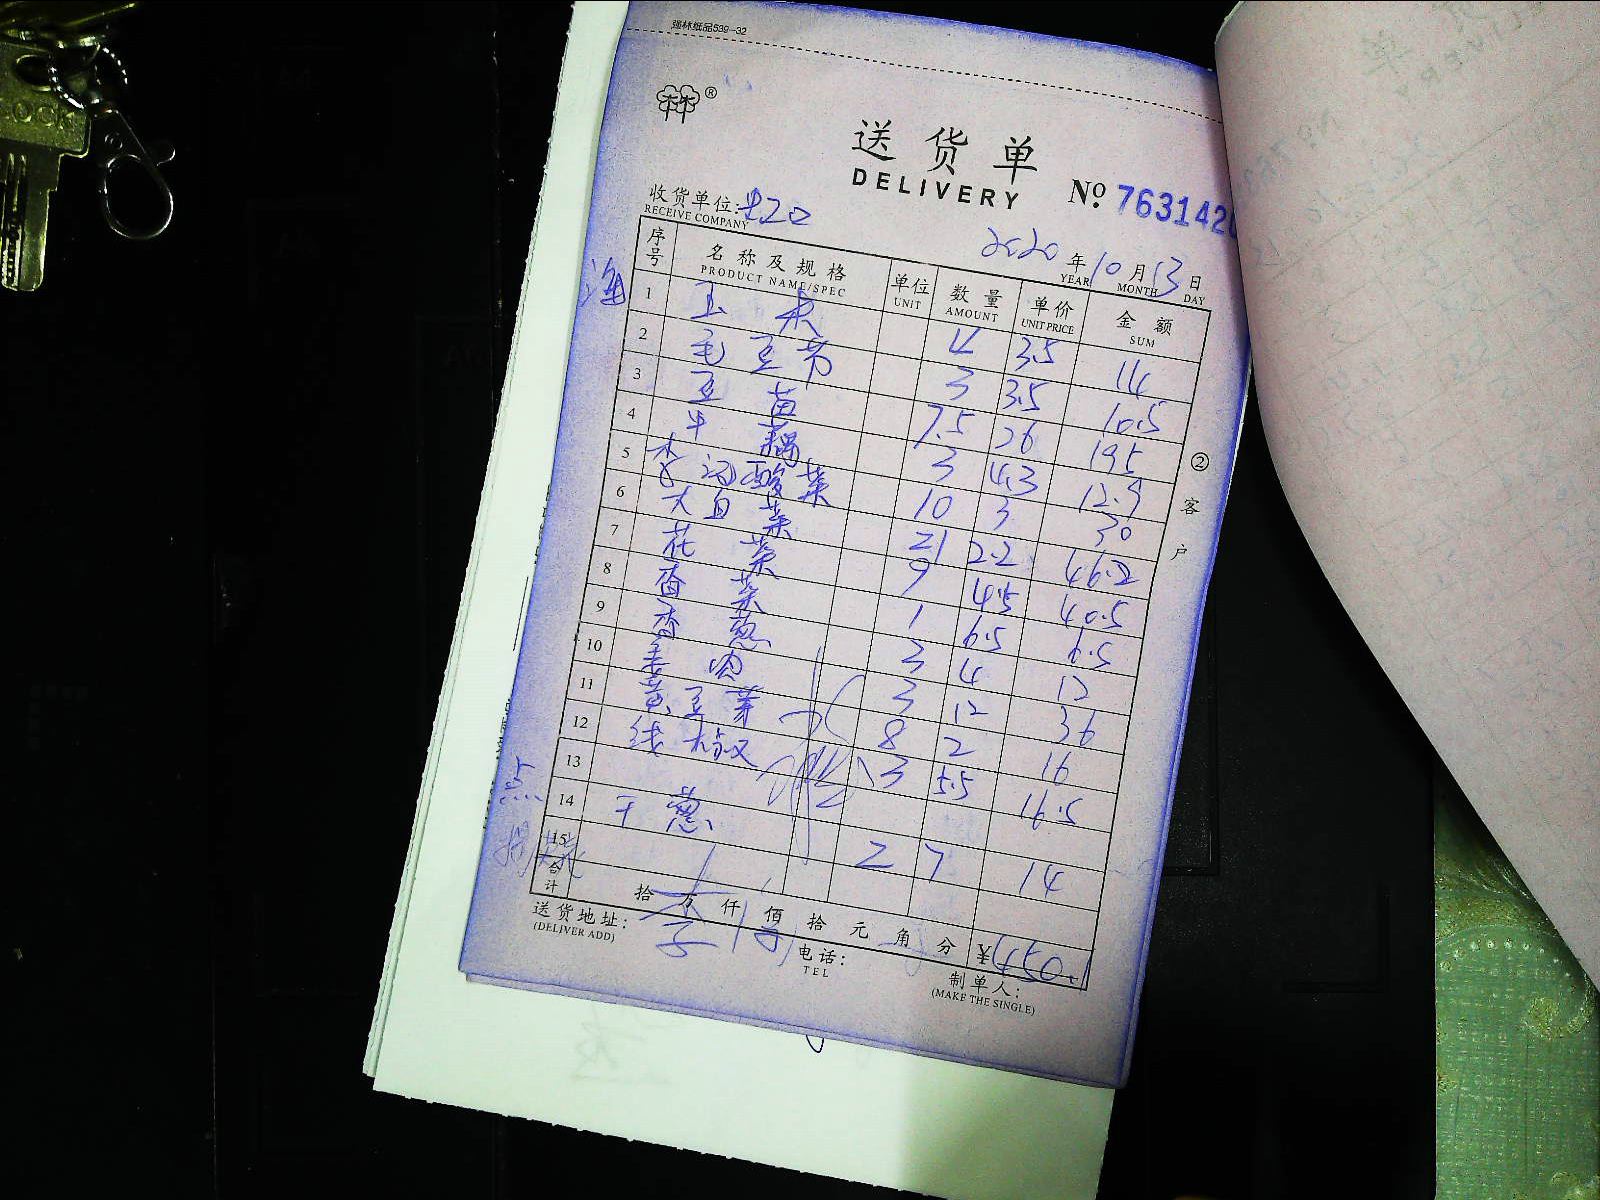 强林纸品539-32
®
送货单
DELIVERY
No 763142
收货单位:
RECEIVE COMPANY
2020年10月13日
YEAR MONTH DAY
序号 名称及规格 单位 数量 单价 金额
PRODUCT NAME/SPEC UNIT AMOUNT UNIT PRICE SUM
1 玉米 4 3.5 14
2 毛豆节 3 3.5 10.5
3 豆苗 7.5 26 195
4 半藕 3 4.3 12.9
5 酸菜 10 3 30
6 大白菜 21 2.2 46.2
7 花菜 9 4.5 40.5
8 香菜 1 6.5 6.5
9 香葱 3 4 12
10 3 12 36
11 黄豆芽 8 2 16
12 线椒 3 5.5 16.5
13
14 干葱 2 7 14
15
合计 拾万仟佰拾元角分 ¥450.1
② 客户
送货地址:
(DELIVER ADD)
电话:
TEL
制单人:
(MAKE THE SINGLE)